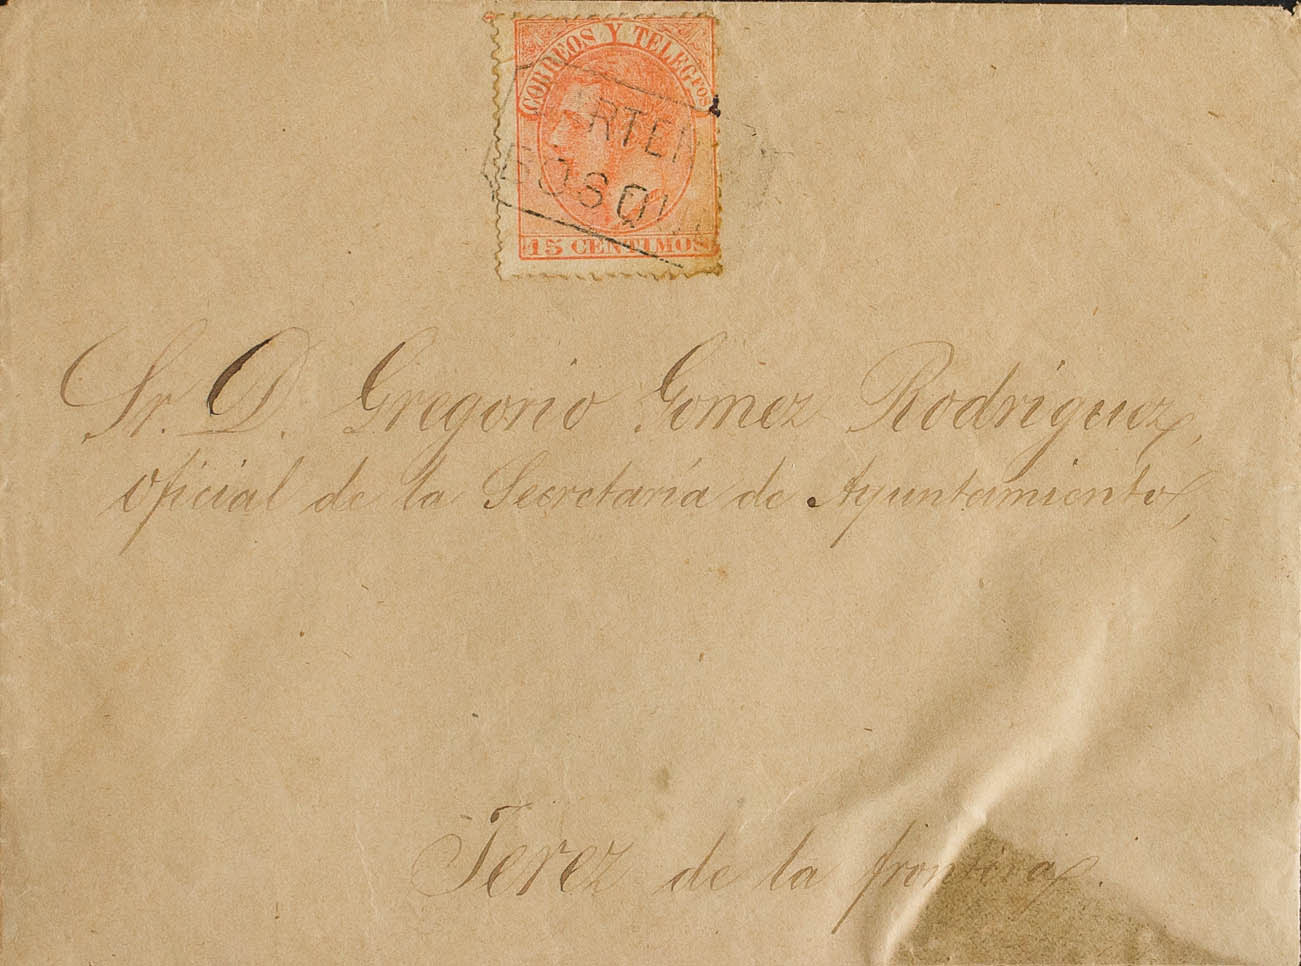 CORREOS Y TELEGFOS
15 CENTIMOS
Sr. D. Gregorio Gomez Rodriguez,
Oficial de la Secretaría de Ayuntamiento,
Jerez de la frontera.